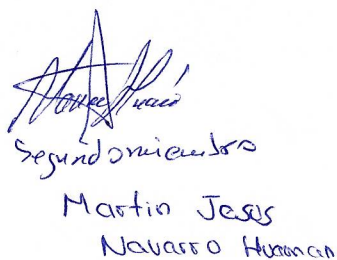 Segundo miembro
Martin Jesus
Navarro Huaman